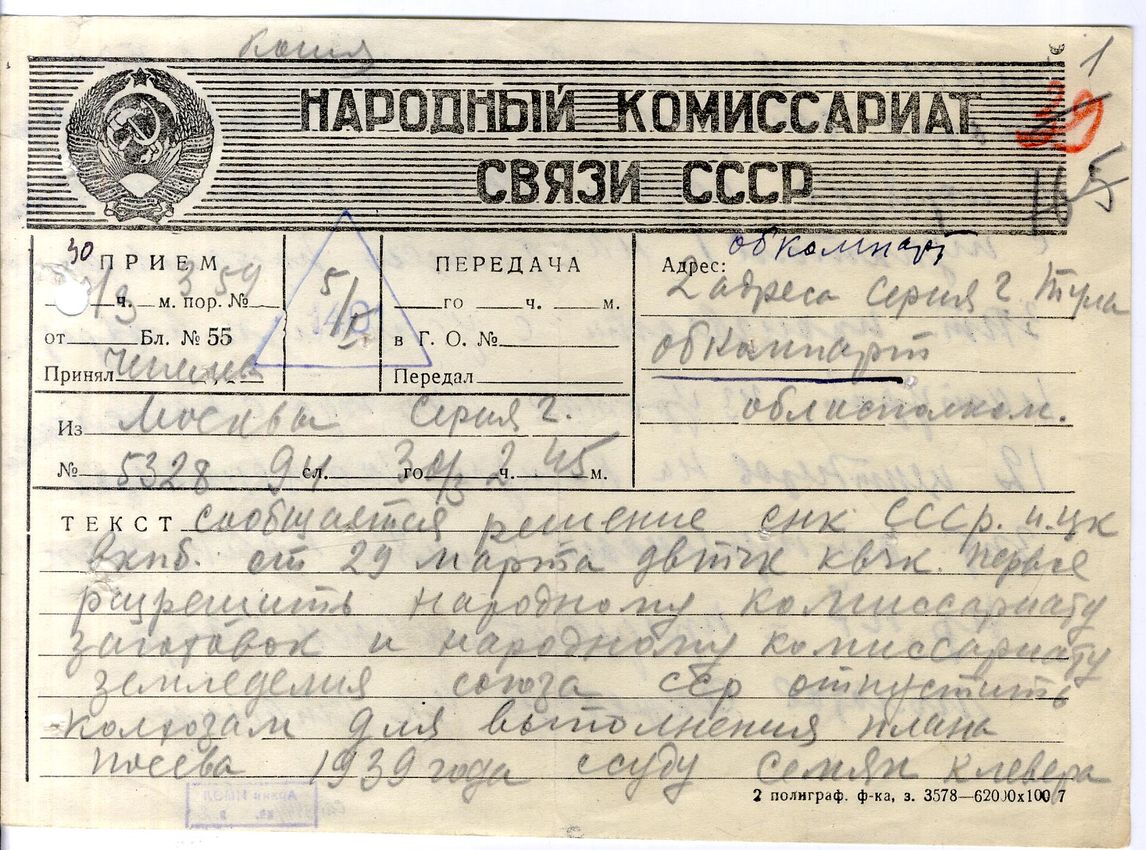 Копия
1
НАРОДНЫЙ КОМИССАРИАТ
29
СВЯЗИ СССР
16 5
30
ПРИЕМ
/3 ч. м. пор. № 359
от Бл. № 55
Принял
5/
ПЕРЕДАЧА
го ч. м.
в Г. О. №
Передал
обкомпарт
Адрес:
2 адреса Серия Г Тула
обкомпарт
облисполком.
Из Москвы Серия Г.
№ 5328 94 сл. 30/3 го 2 ч. 45 м.
ТЕКСТ Сообщается решение снк СССР. и.цк
вкпб. от 29 марта двтчк квчк. первое
разрешить народному комиссариату
заготовок и народному комиссариату
земледелия союза сср отпустить
колхозам для выполнения плана
посева 1939 года ссуду семян клевера
2 полиграф. ф-ка, з. 3578—62000х100 7